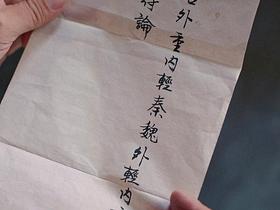 外重内輕秦魏外輕内
得論